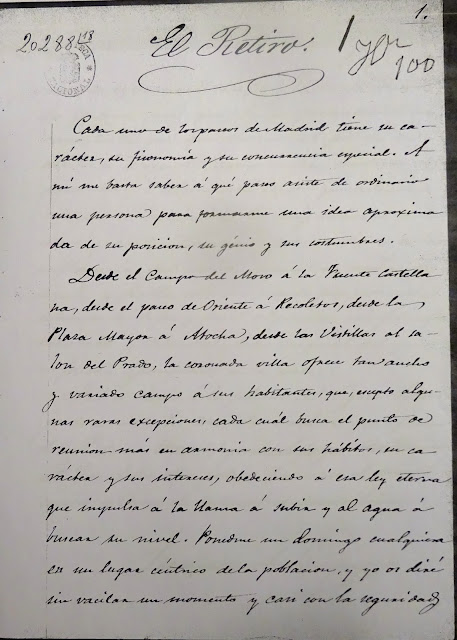 1.
20288/18
El Retiro.
100
NACIONAL
Cada uno de los paseos de Madrid tiene su ca-
rácter, su fisonomía y su concurrencia especial. A
mí me basta saber á qué paseo asiste de ordinario
una persona para formarme una idea aproxima
da de su posicion, su génio y sus costumbres.
Desde el Campo del Moro á la Fuente Castella
na, desde el paseo de Oriente á Recoletos, desde la
Plaza Mayor á Atocha, desde las Vistillas al sa-
lon del Prado, la coronada villa ofrece tan ancho
y variado campo á sus habitantes, que, escepto algu-
nas raras excepciones, cada cuál busca el punto de
reunion más en armonía con sus hábitos, su ca-
rácter y sus intereses, obedeciendo á esa ley eterna
que impulsa á la llama á subir y al agua á
buscar su nivel. Ponedme un domingo cualquiera
en un lugar céntrico de la poblacion, y yo os diré
sin vacilar un momento y casi con la seguridad